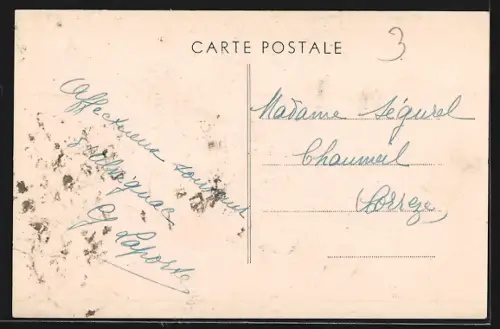 CARTE POSTALE
3
Affectueux souvenir
d'Objat
G Laporte
Madame Ségurel
Chaumeil
Corrèze